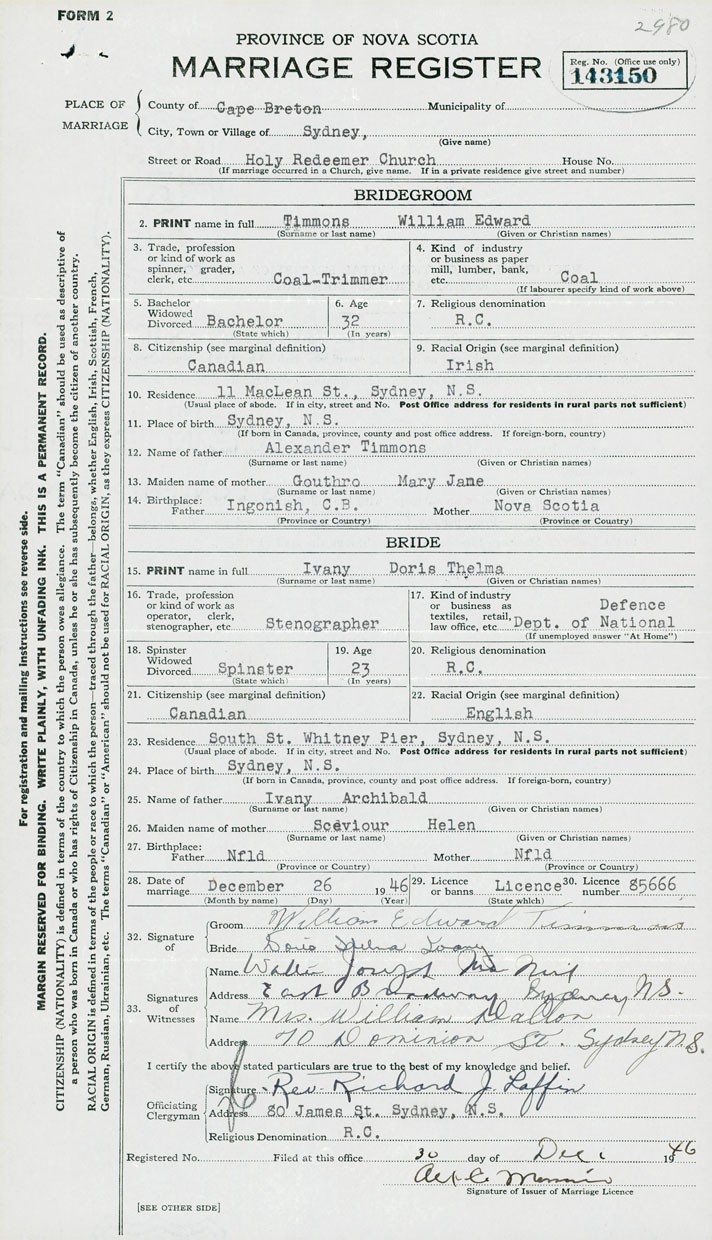 FORM 2
2980
PROVINCE OF NOVA SCOTIA
MARRIAGE REGISTER
Reg. No. (Office use only)
143150
PLACE OF MARRIAGE
County of Cape Breton Municipality of
City, Town or Village of Sydney,
(Give name)
Street or Road Holy Redeemer Church House No.
(If marriage occurred in a Church, give name. If in a private residence give street and number)
BRIDEGROOM
2. PRINT name in full Timmons William Edward
(Surname or last name) (Given or Christian names)
3. Trade, profession or kind of work as spinner, grader, clerk, etc. Coal-Trimmer
4. Kind of industry or business as paper mill, lumber, bank, etc. Coal
(If labourer specify kind of work above)
5. Bachelor Widowed Divorced Bachelor
(State which)
6. Age 32
(In years)
7. Religious denomination
R.C.
8. Citizenship (see marginal definition)
Canadian
9. Racial Origin (see marginal definition)
Irish
10. Residence 11 MacLean St., Sydney, N.S.
(Usual place of abode. If in city, street and No. Post Office address for residents in rural parts not sufficient)
11. Place of birth Sydney, N.S.
(If born in Canada, province, county and post office address. If foreign-born, country)
12. Name of father Alexander Timmons
(Surname or last name) (Given or Christian names)
13. Maiden name of mother Gouthro Mary Jane
(Surname or last name) (Given or Christian names)
14. Birthplace: Father Ingonish, C.B. Mother Nova Scotia
(Province or Country) (Province or Country)
BRIDE
15. PRINT name in full Ivany Doris Thelma
(Surname or last name) (Given or Christian names)
16. Trade, profession or kind of work as operator, clerk, stenographer, etc Stenographer
17. Kind of industry or business as textiles, retail, law office, etc. Defence Dept. of National
(If unemployed answer "At Home")
18. Spinster Widowed Divorced Spinster
(State which)
19. Age 23
(In years)
20. Religious denomination
R.C.
21. Citizenship (see marginal definition)
Canadian
22. Racial Origin (see marginal definition)
English
23. Residence South St. Whitney Pier, Sydney, N.S.
(Usual place of abode. If in city, street and No. Post Office address for residents in rural parts not sufficient)
24. Place of birth Sydney, N.S.
(If born in Canada, province, county and post office address. If foreign-born, country)
25. Name of father Ivany Archibald
(Surname or last name) (Given or Christian names)
26. Maiden name of mother Sceviour Helen
(Surname or last name) (Given or Christian names)
27. Birthplace: Father Nfld Mother Nfld
(Province or Country) (Province or Country)
28. Date of marriage December 26 1946
(Month by name) (Day) (Year)
29. Licence or banns Licence
(State which)
30. Licence number 85666
32. Signature of
Groom William Edward Timmons
Bride Doris Thelma Ivany
33. Signatures of Witnesses
Name Walter Joseph Mac Neil
Address East Broadway Sydney N.S.
Name Mrs. William Dalton
Address 70 Dominion St. Sydney N.S.
I certify the above stated particulars are true to the best of my knowledge and belief.
Officiating Clergyman
Signature Rev. Richard J. Laffin
Address 80 James St. Sydney, N.S.
Religious Denomination R.C.
Registered No. Filed at this office 30 day of Dec. 1946
Signature of Issuer of Marriage Licence
[SEE OTHER SIDE]
For registration and mailing instructions see reverse side.
MARGIN RESERVED FOR BINDING. WRITE PLAINLY, WITH UNFADING INK. THIS IS A PERMANENT RECORD.
CITIZENSHIP (NATIONALITY) is defined in terms of the country to which the person owes allegiance. The term "Canadian" should be used as descriptive of
a person who was born in Canada or who has rights of Citizenship in Canada, unless he or she has subsequently become the citizen of another country.
RACIAL ORIGIN is defined in terms of the people or race to which the person—traced through the father—belongs, whether English, Irish, Scottish, French,
German, Russian, Ukrainian, etc. The terms "Canadian" or "American" should not be used for RACIAL ORIGIN, as they express CITIZENSHIP (NATIONALITY).